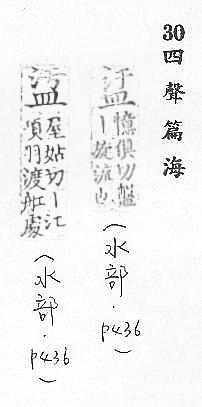 30四聲篇海
盓
憶俱切盤
丨旋流也
(水部.p436)
屋姑切丨江
項羽渡舡處
(水部.p436)